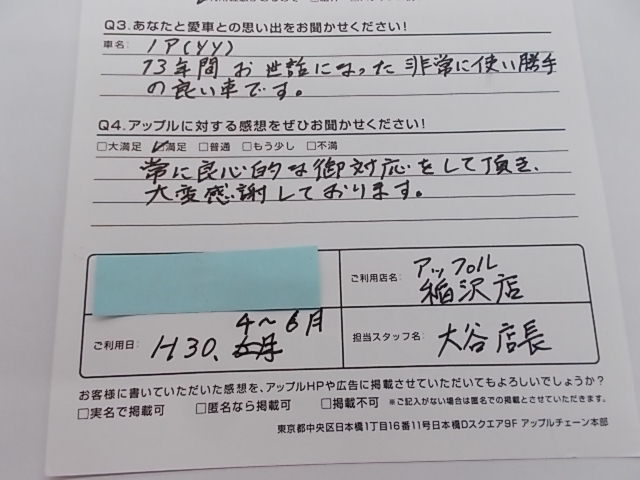 Q3.あなたと愛車との思い出をお聞かせください!
車名:
13年間 お世話になった 非常に使い勝手
の良い車です。
Q4.アップルに対する感想をぜひお聞かせください!
□大満足 ☑満足 □普通 □もう少し □不満
常に良心的な御対応をして頂き、
大変感謝しております。
ご利用店名: アップル
稲沢店
4～6月
ご利用日: H30.
担当スタッフ名: 大谷店長
お客様に書いていただいた感想を、アップルHPや広告に掲載させていただいてもよろしいでしょうか?
□実名で掲載可 □匿名なら掲載可 □掲載不可 ※ご記入がない場合は匿名での掲載とさせていただきます。
東京都中央区日本橋1丁目16番11号日本橋Dスクエア9F アップルチェーン本部